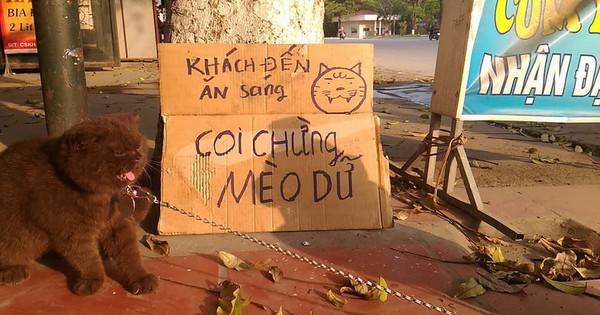 BIA
2 Lít
KHÁCH ĐẾN
ĂN sáng
COI CHỪNG
MÈO DỮ
CƠM
NHẬN